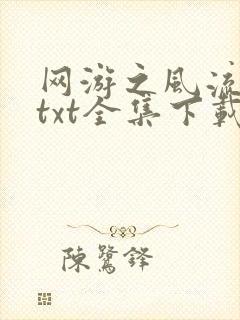 网游之风流
txt全集下載
陳鷺鋒